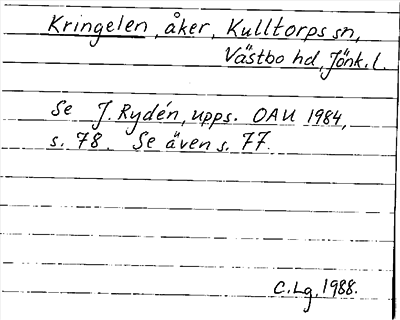 Kringelen, åker, Kulltorps sn,
Västbo hd, Jönk. l.
Se J. Rydén, upps. OAU 1984,
s. 78. Se även s. 77.
C. Lg, 1988.